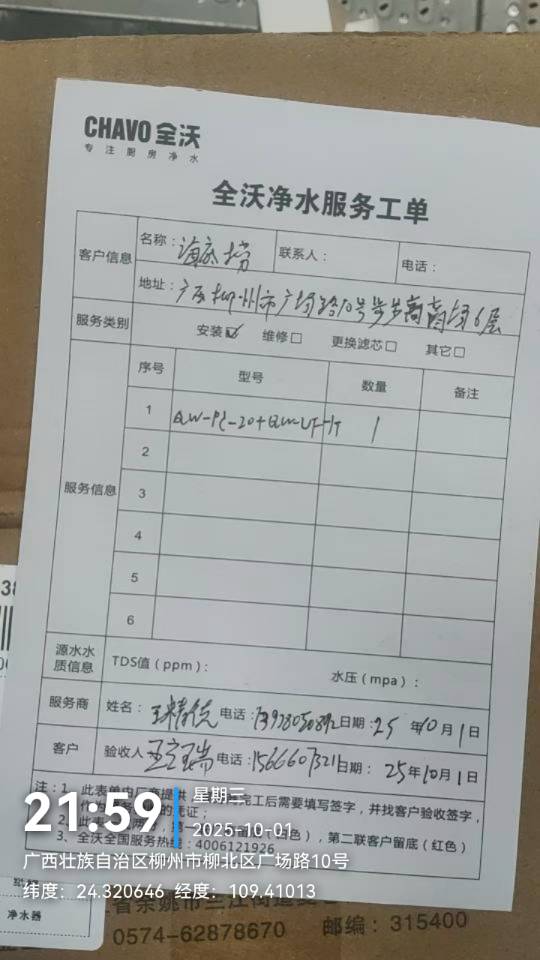 CHAVO 全沃
专注厨房净水
全沃净水服务工单
客户信息
名称：海底捞
联系人：
电话：
地址：广西柳州市广场路10号步步高商场6层
服务类别
安装☑ 维修□ 更换滤芯□ 其它□
服务信息
序号 型号 数量 备注
1 QW-PL-20+QW-UF-1T 1
2
3
4
5
6
源水水质信息
TDS值（ppm）：
水压（mpa）：
服务商
姓名： 电话： 日期：25年10月1日
客户
验收人 电话： 日期：25年10月1日
注：1、此表单由厂商提供，完工后需要填写签字，并找客户验收签字，
的凭证；
2、此表 第一 色），第二联客户留底（红色）
3、全沃全国服务热线：4006121926
21:59
星期三
2025-10-01
广西壮族自治区柳州市柳北区广场路10号
纬度：24.320646 经度：109.41013
净水器
省余姚市兰江街道
0574-62878670 邮编：315400